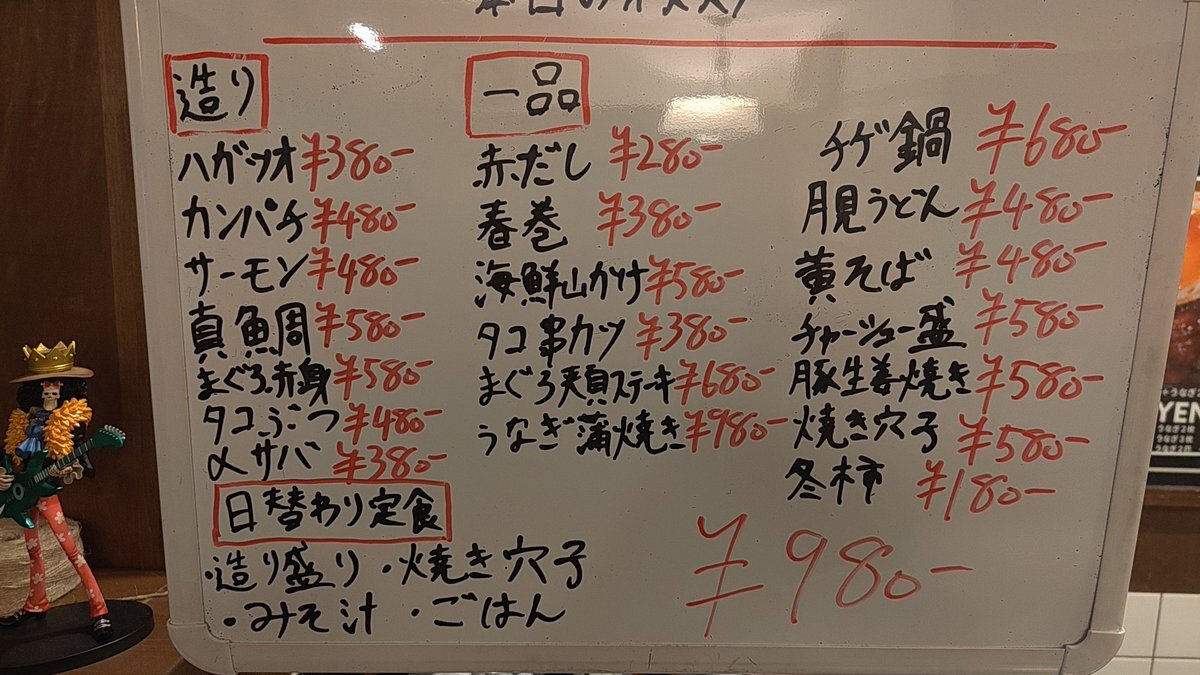 本日のオススメ
造り
ハガツオ ¥380-
カンパチ ¥480-
サーモン ¥480-
真鯛 ¥580-
まぐろ赤身 ¥580-
タコぶつ ¥480-
〆サバ ¥380-
一品
赤だし ¥280-
春巻 ¥380-
海鮮山かけ ¥580-
タコ串カツ ¥380-
まぐろ頬ステーキ ¥680-
うなぎ蒲焼き ¥980-
チゲ鍋 ¥680-
月見うどん ¥480-
黄そば ¥480-
チャーシュー盛 ¥580-
豚生姜焼き ¥580-
焼き穴子 ¥580-
冬柿 ¥180-
日替わり定食
・造り盛り・焼き穴子
・みそ汁・ごはん
¥980-